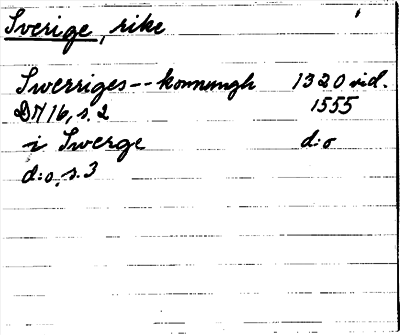 Sverige, rike
Swerriges -- konnungh 1320 vid.
DN 16, s. 2 1555
i Swerge d:o
d:o, s. 3